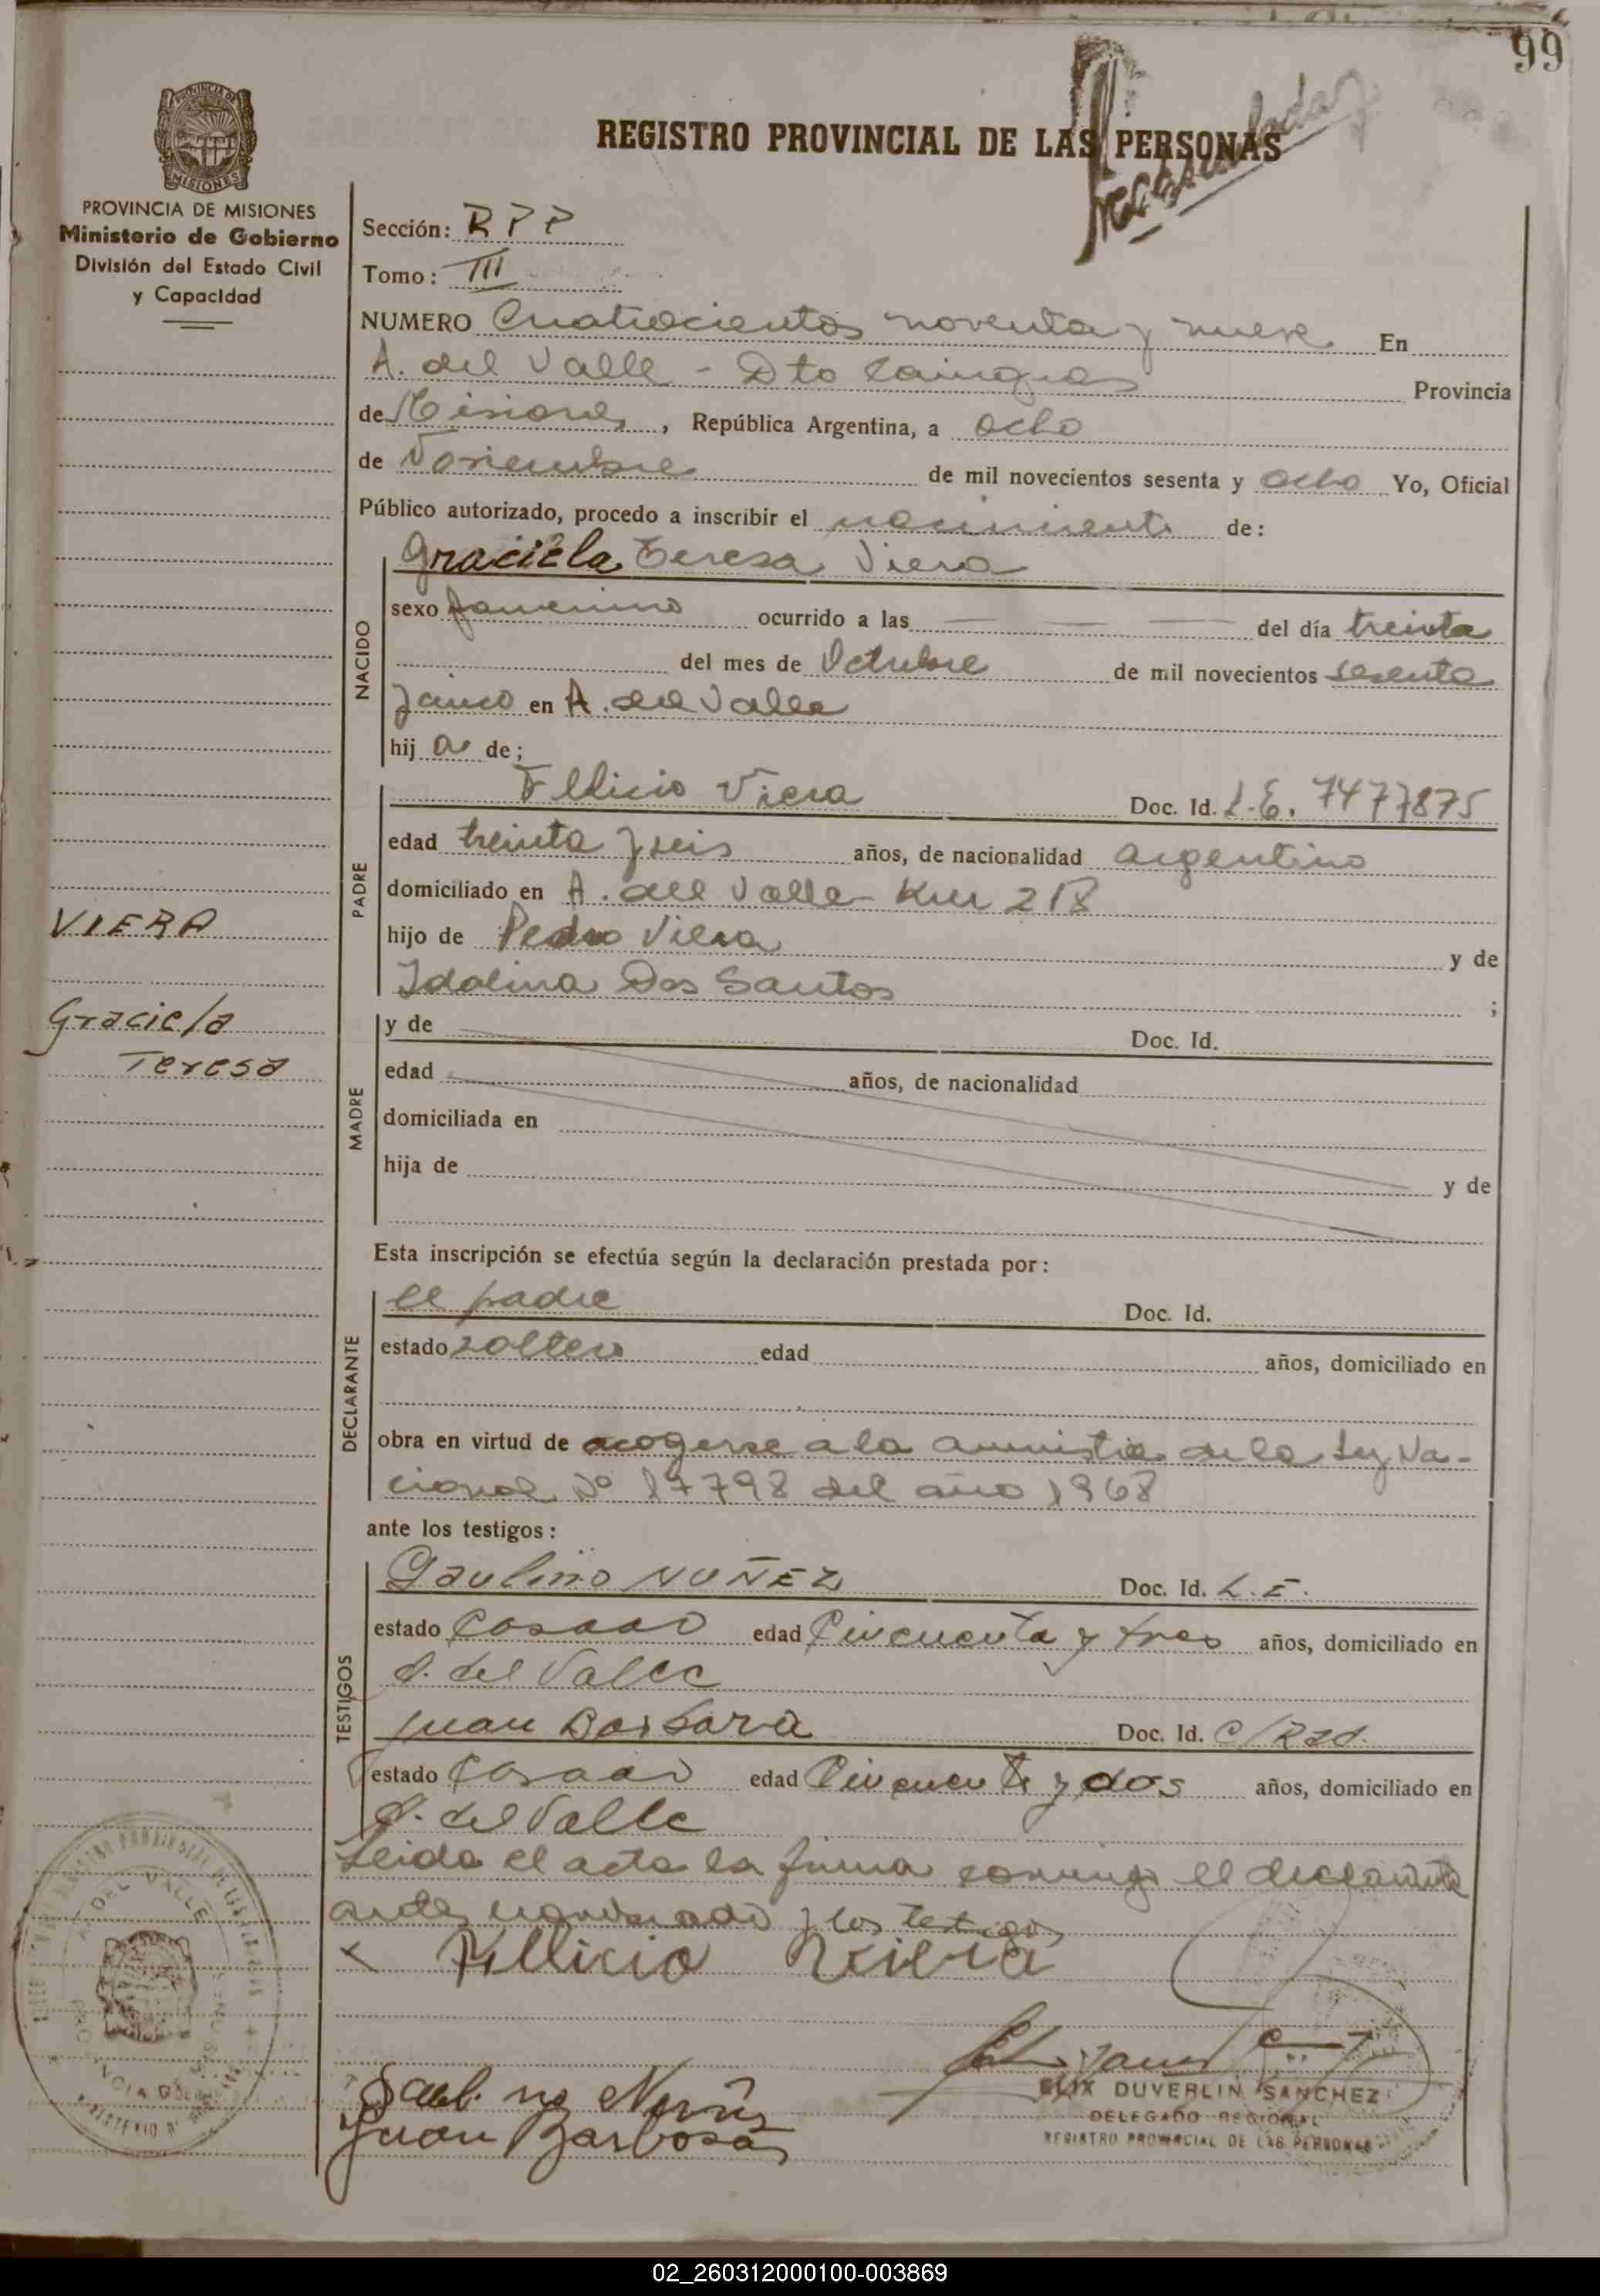 99
REGISTRO PROVINCIAL DE LAS PERSONAS
PROVINCIA DE MISIONES
Ministerio de Gobierno
División del Estado Civil
y Capacidad
Sección: R P P
Tomo: III
NUMERO Cuatrocientos noventa y nueve En
A. del Valle - Dto Cainguas Provincia
de Misiones, República Argentina, a ocho
de Noviembre de mil novecientos sesenta y ocho Yo, Oficial
Público autorizado, procedo a inscribir el nacimiento de:
NACIDO
Graciela Teresa Viera
sexo femenino ocurrido a las — — — del día treinta
del mes de Octubre de mil novecientos sesenta
y cinco en A. del Valle
hij a de;
PADRE
Fellicio Viera Doc. Id. L.E. 7477875
edad treinta y seis años, de nacionalidad argentino
domiciliado en A. del Valle - Km 218
hijo de Pedro Viera y de
Idalina Dos Santos ;
VIERA
Graciela
Teresa
MADRE
y de Doc. Id.
edad años, de nacionalidad
domiciliada en
hija de y de
Esta inscripción se efectúa según la declaración prestada por:
DECLARANTE
el padre Doc. Id.
estado soltero edad años, domiciliado en
obra en virtud de acogerse a la amnistia de la Ley Na-
cional Nº 17798 del año 1968
ante los testigos:
TESTIGOS
Paulino NUÑEZ Doc. Id. L.E.
estado Casado edad Cincuenta y tres años, domiciliado en
A. del Valle
Juan Barbora Doc. Id. C/Rad.
estado Casado edad Cincuenta y dos años, domiciliado en
A. del Valle
Leida el acta la firma conmigo el declarante
antes nombrado y los testigos
x Fellicio Vieira
Nuñez
Juan Barbosa
ELIX DUVERLIN SANCHEZ
DELEGADO REGIONAL
REGISTRO PROVINCIAL DE LAS PERSONAS
A. DEL VALLE
02_260312000100-003869